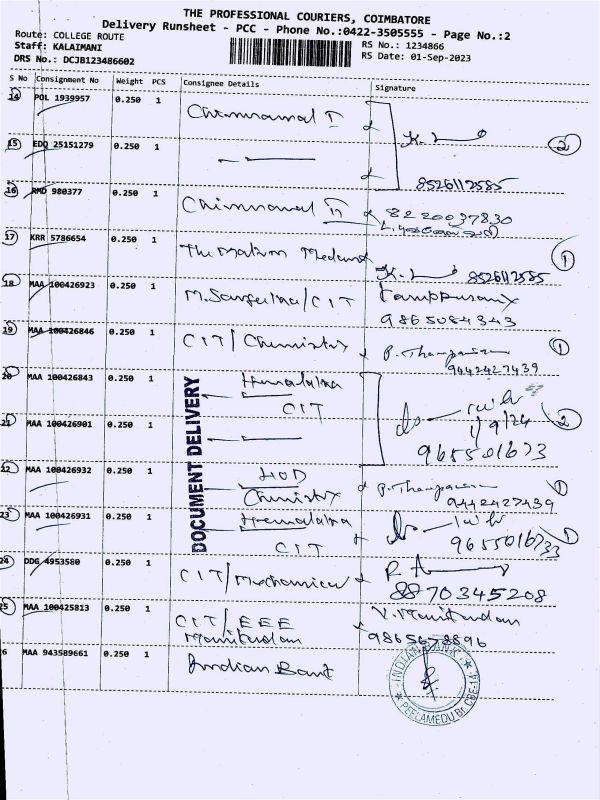 THE PROFESSIONAL COURIERS, COIMBATORE
Delivery Runsheet - PCC - Phone No.:0422-3505555 - Page No.:2
Route: COLLEGE ROUTE
Staff: KALAIMANI
DRS No.: DCJB123486602
RS No.: 1234866
RS Date: 01-Sep-2023
S No Consignment No Weight PCS Consignee Details Signature
14 POL 1939957 0.250 1
15 EDQ 25151279 0.250 1 2
8526112585
16 RMD 980377 0.250 1 8220037830
17 KRR 5786654 0.250 1 The 8526112585 1
18 MAA 100426923 0.250 1 M. /CIT
9865084343
19 MAA 100426846 0.250 1 CIT/Chemistry 1
9442427439
20 MAA 100426843 0.250 1 Hemalatha
CIT
21 MAA 100426901 0.250 1 2
22 MAA 100426932 0.250 1 HOD
Chemistry 9442427439 1
23 MAA 100426931 0.250 1 Hemalatha
CIT 1
24 DDG 4953580 0.250 1 CIT/Mechanical
8870345208
25 MAA 100425813 0.250 1 CIT/EEE
9865678896
6 MAA 943589661 0.250 1 Indian Bank
DOCUMENT DELIVERY
INDIAN BANK
PEELAMEDU Br. CBE-14